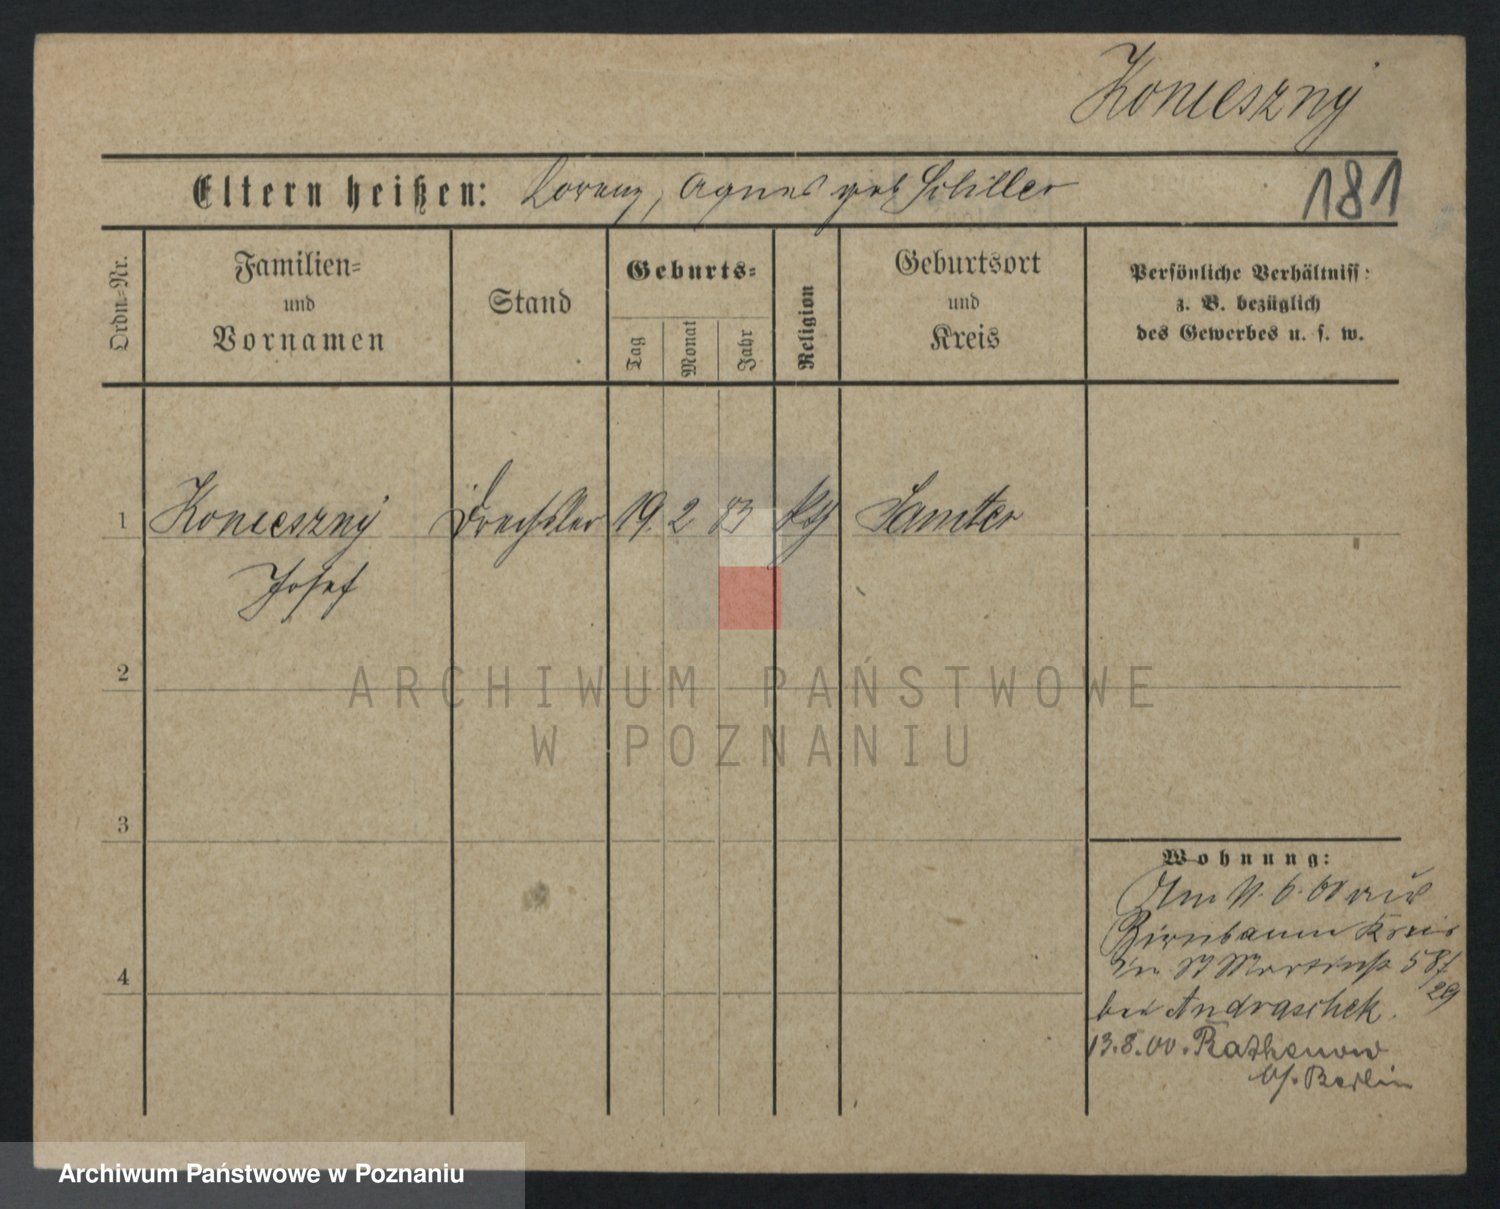 Konieszny
Eltern heißen: Lorenz, Agnes geb Schiller
181
Ordn.-Nr.
Familien-
und
Vornamen
Stand
Geburts-
Tag
Monat
Jahr
Religion
Geburtsort
und
Kreis
Persönliche Verhältniss:
z. B. bezüglich
des Gewerbes u. s. w.
1 Konieszny Drechsler 19. 2 83 kth Samter
Josef
2
3
4
Wohnung:
Am 11. 6. 00 aus
Birnbaum Kreis
St Martinstr 58/
29
bei Andraschek.
13.8.00. Rathenow
b/. Berlin
ARCHIWUM PAŃSTWOWE
W POZNANIU
Archiwum Państwowe w Poznaniu